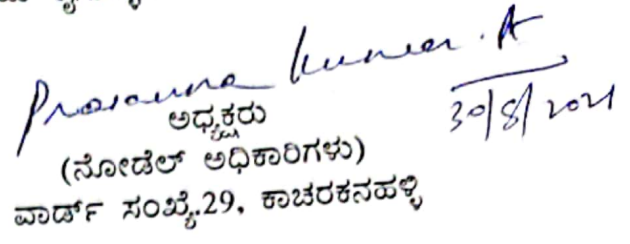 Prasanna Kumar. A
30/8/2021
ಅಧ್ಯಕ್ಷರು
(ನೋಡೆಲ್ ಅಧಿಕಾರಿಗಳು)
ವಾರ್ಡ್ ಸಂಖ್ಯೆ.29, ಕಾಚರಕನಹಳ್ಳಿ